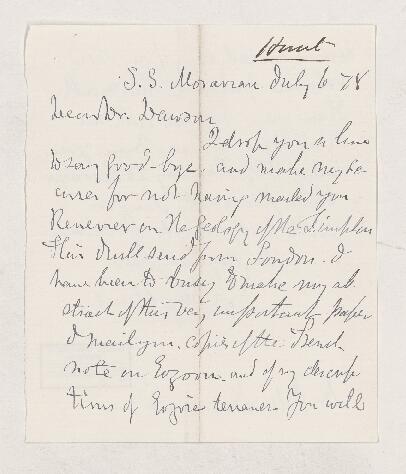 Hunt
S. S. Moravian July 6 78
Dear Dr. Dawson
I drop you a line
to say good-bye, and make my ex-
cuses for not having mailed you
Renevier on the Geology of the Simplon
This I will send from London. I
have been too busy to make my ab
stract of this very important paper
I mail you copies of the French
note on Eozoon and of my descrip
tions of Eozoic terranes. You will